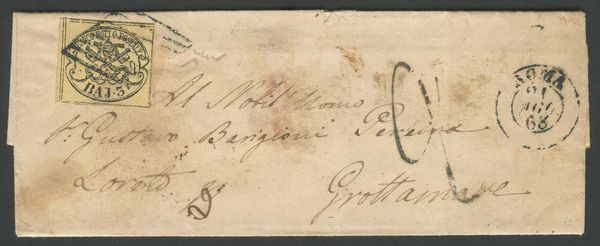 FRANCO BOLLO POSTALE
BAJ. 5
ROMA
21
AGO
63
Al Nobil Uomo
Sr. Gustavo Barigioni Pereira
Loreto
Grottamare